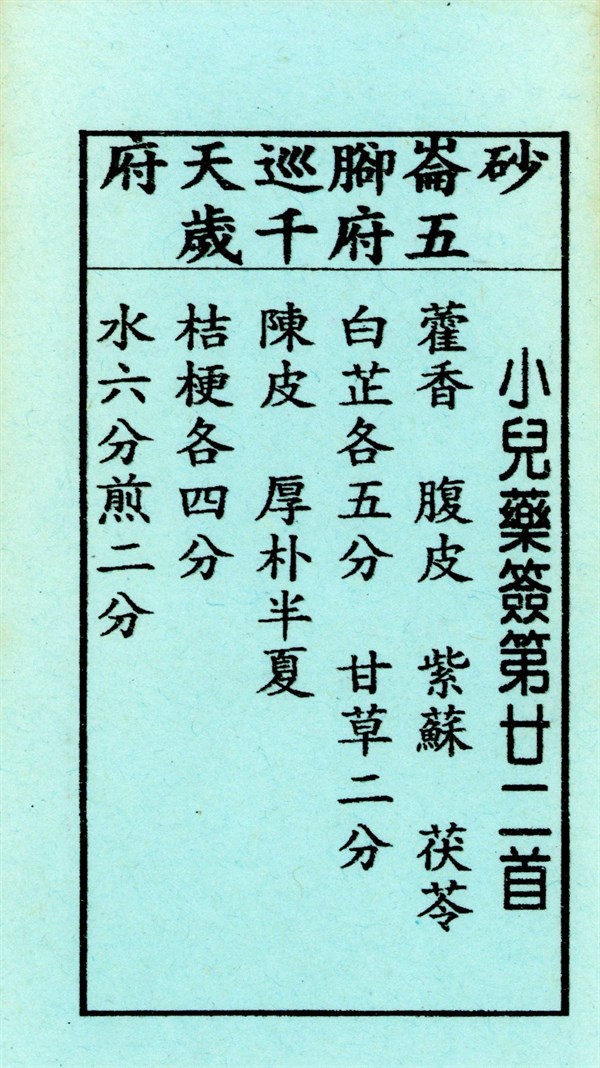 砂崙腳巡天府
五府千歲
小兒藥簽第廿二首
藿香 腹皮 紫蘇 茯苓
白芷各五分 甘草二分
陳皮 厚朴半夏
桔梗各四分
水六分煎二分